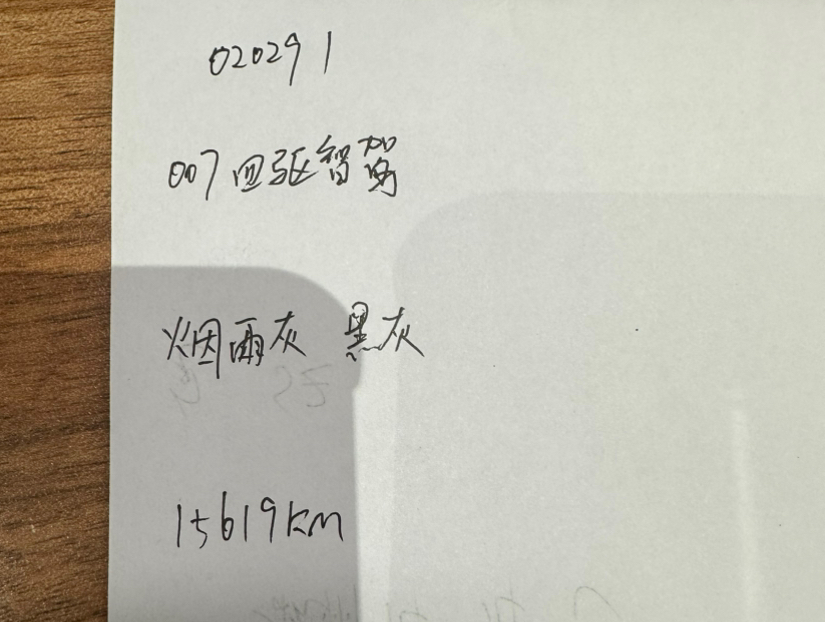 020291
007 四驱智驾
烟雨灰 黑灰
15619km